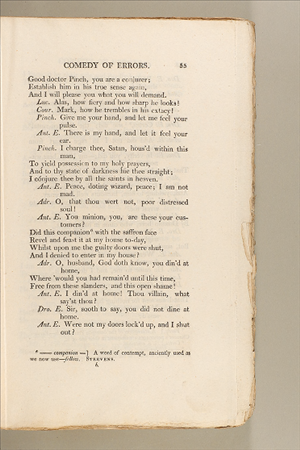 COMEDY OF ERRORS. 55
Good doctor Pinch, you are a conjurer;
Establish him in his true sense again,
And I will please you what you will demand.
Luc. Alas, how fiery and how sharp he looks!
Cour. Mark, how he trembles in his extacy!
Pinch. Give me your hand, and let me feel your
pulse.
Ant. E. There is my hand, and let it feel your
ear.
Pinch. I charge thee, Satan, hous'd within this
man,
To yield possession to my holy prayers,
And to thy state of darkness hie thee straight;
I cónjure thee by all the saints in heaven.
Ant. E. Peace, doting wizard, peace; I am not
mad.
Adr. O, that thou wert not, poor distressed
soul!
Ant. E. You minion, you, are these your cus-
tomers?
Did this companion* with the saffron face
Revel and feast it at my house to-day,
Whilst upon me the guilty doors were shut,
And I denied to enter in my house?
Adr. O, husband, God doth know, you din'd at
home,
Where 'would you had remain'd until this time,
Free from these slanders, and this open shame!
Ant. E. I din'd at home! Thou villain, what
say'st thou?
Dro. E. Sir, sooth to say, you did not dine at
home.
Ant. E. Were not my doors lock'd up, and I shut
out?
* —— companion —] A word of contempt, anciently used as
we now use—fellow. STEEVENS.